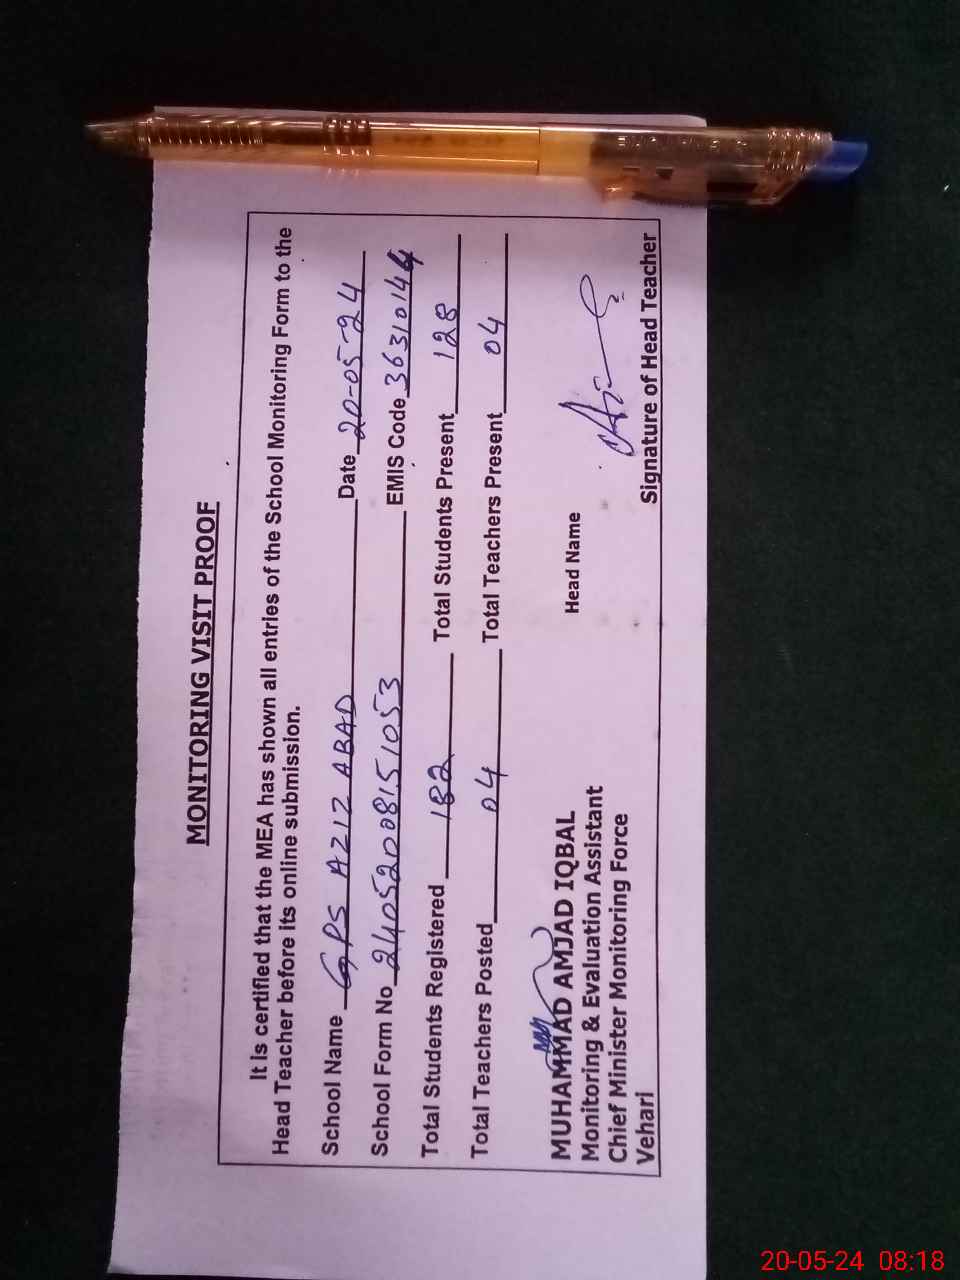 MONITORING VISIT PROOF
It is certified that the MEA has shown all entries of the School Monitoring Form to the
Head Teacher before its online submission.
School Name GPS AZIZ ABAD Date 20-05-24
School Form No 24052008151053 EMIS Code 36310144
Total Students Registered 182 Total Students Present 128
Total Teachers Posted 04 Total Teachers Present 04
MUHAMMAD AMJAD IQBAL
Monitoring & Evaluation Assistant
Chief Minister Monitoring Force
Vehari
Head Name
Signature of Head Teacher
20-05-24 08:18